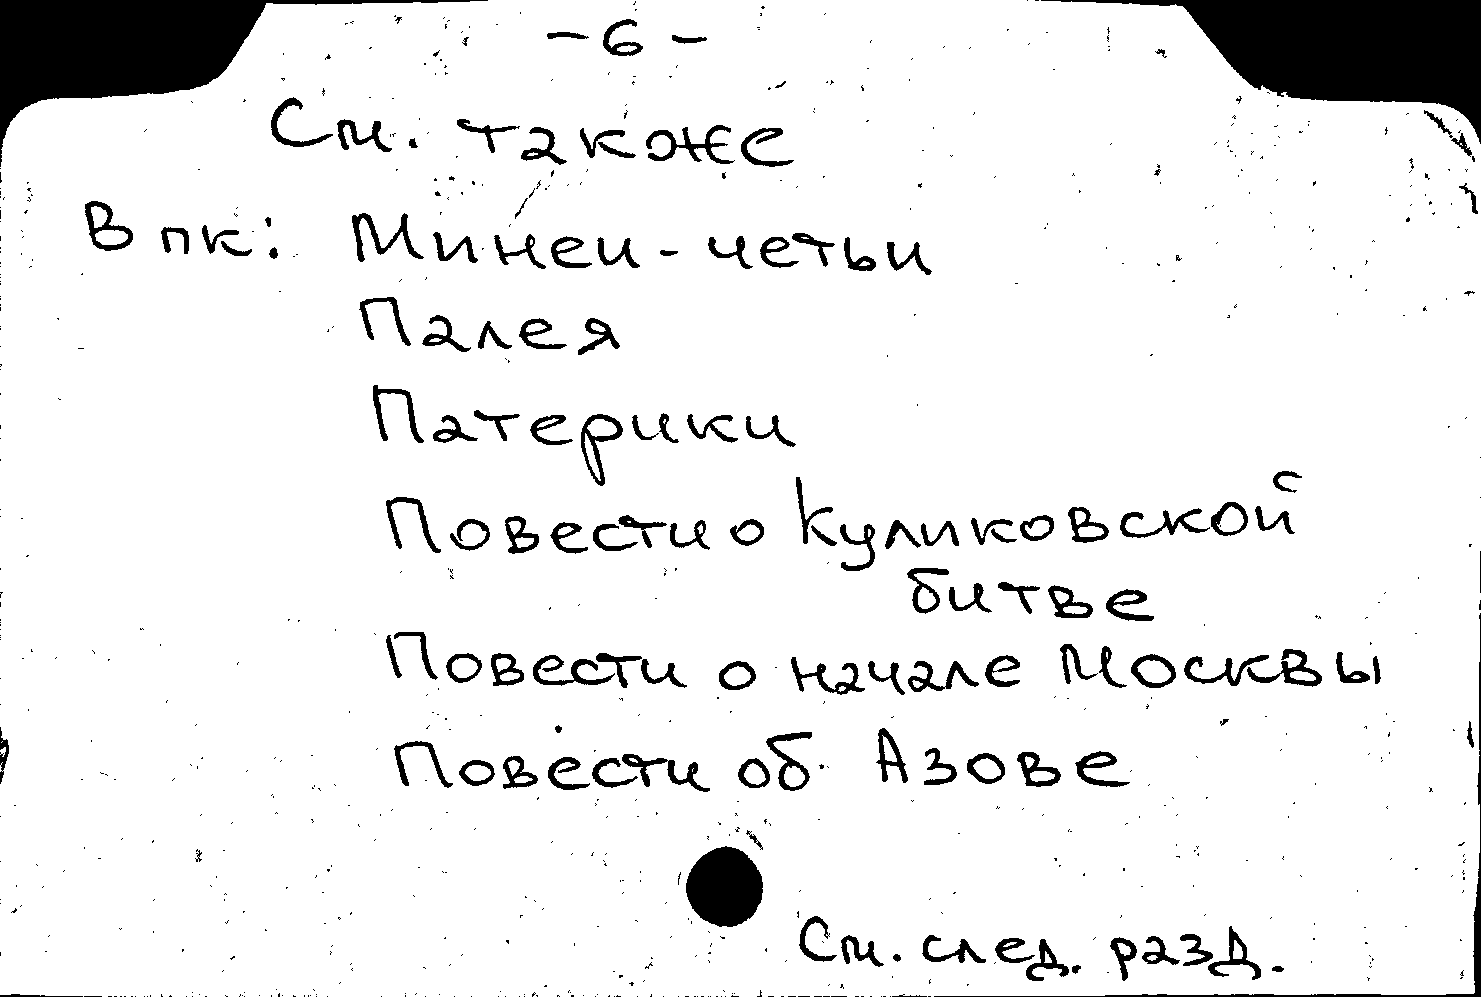 - 6 -
См. также
В пк: Минеи-четьи
Палея
Патерики
Повести о Куликовской
битве
Повести о начале Москвы
Повести об Азове
См. след. разд.